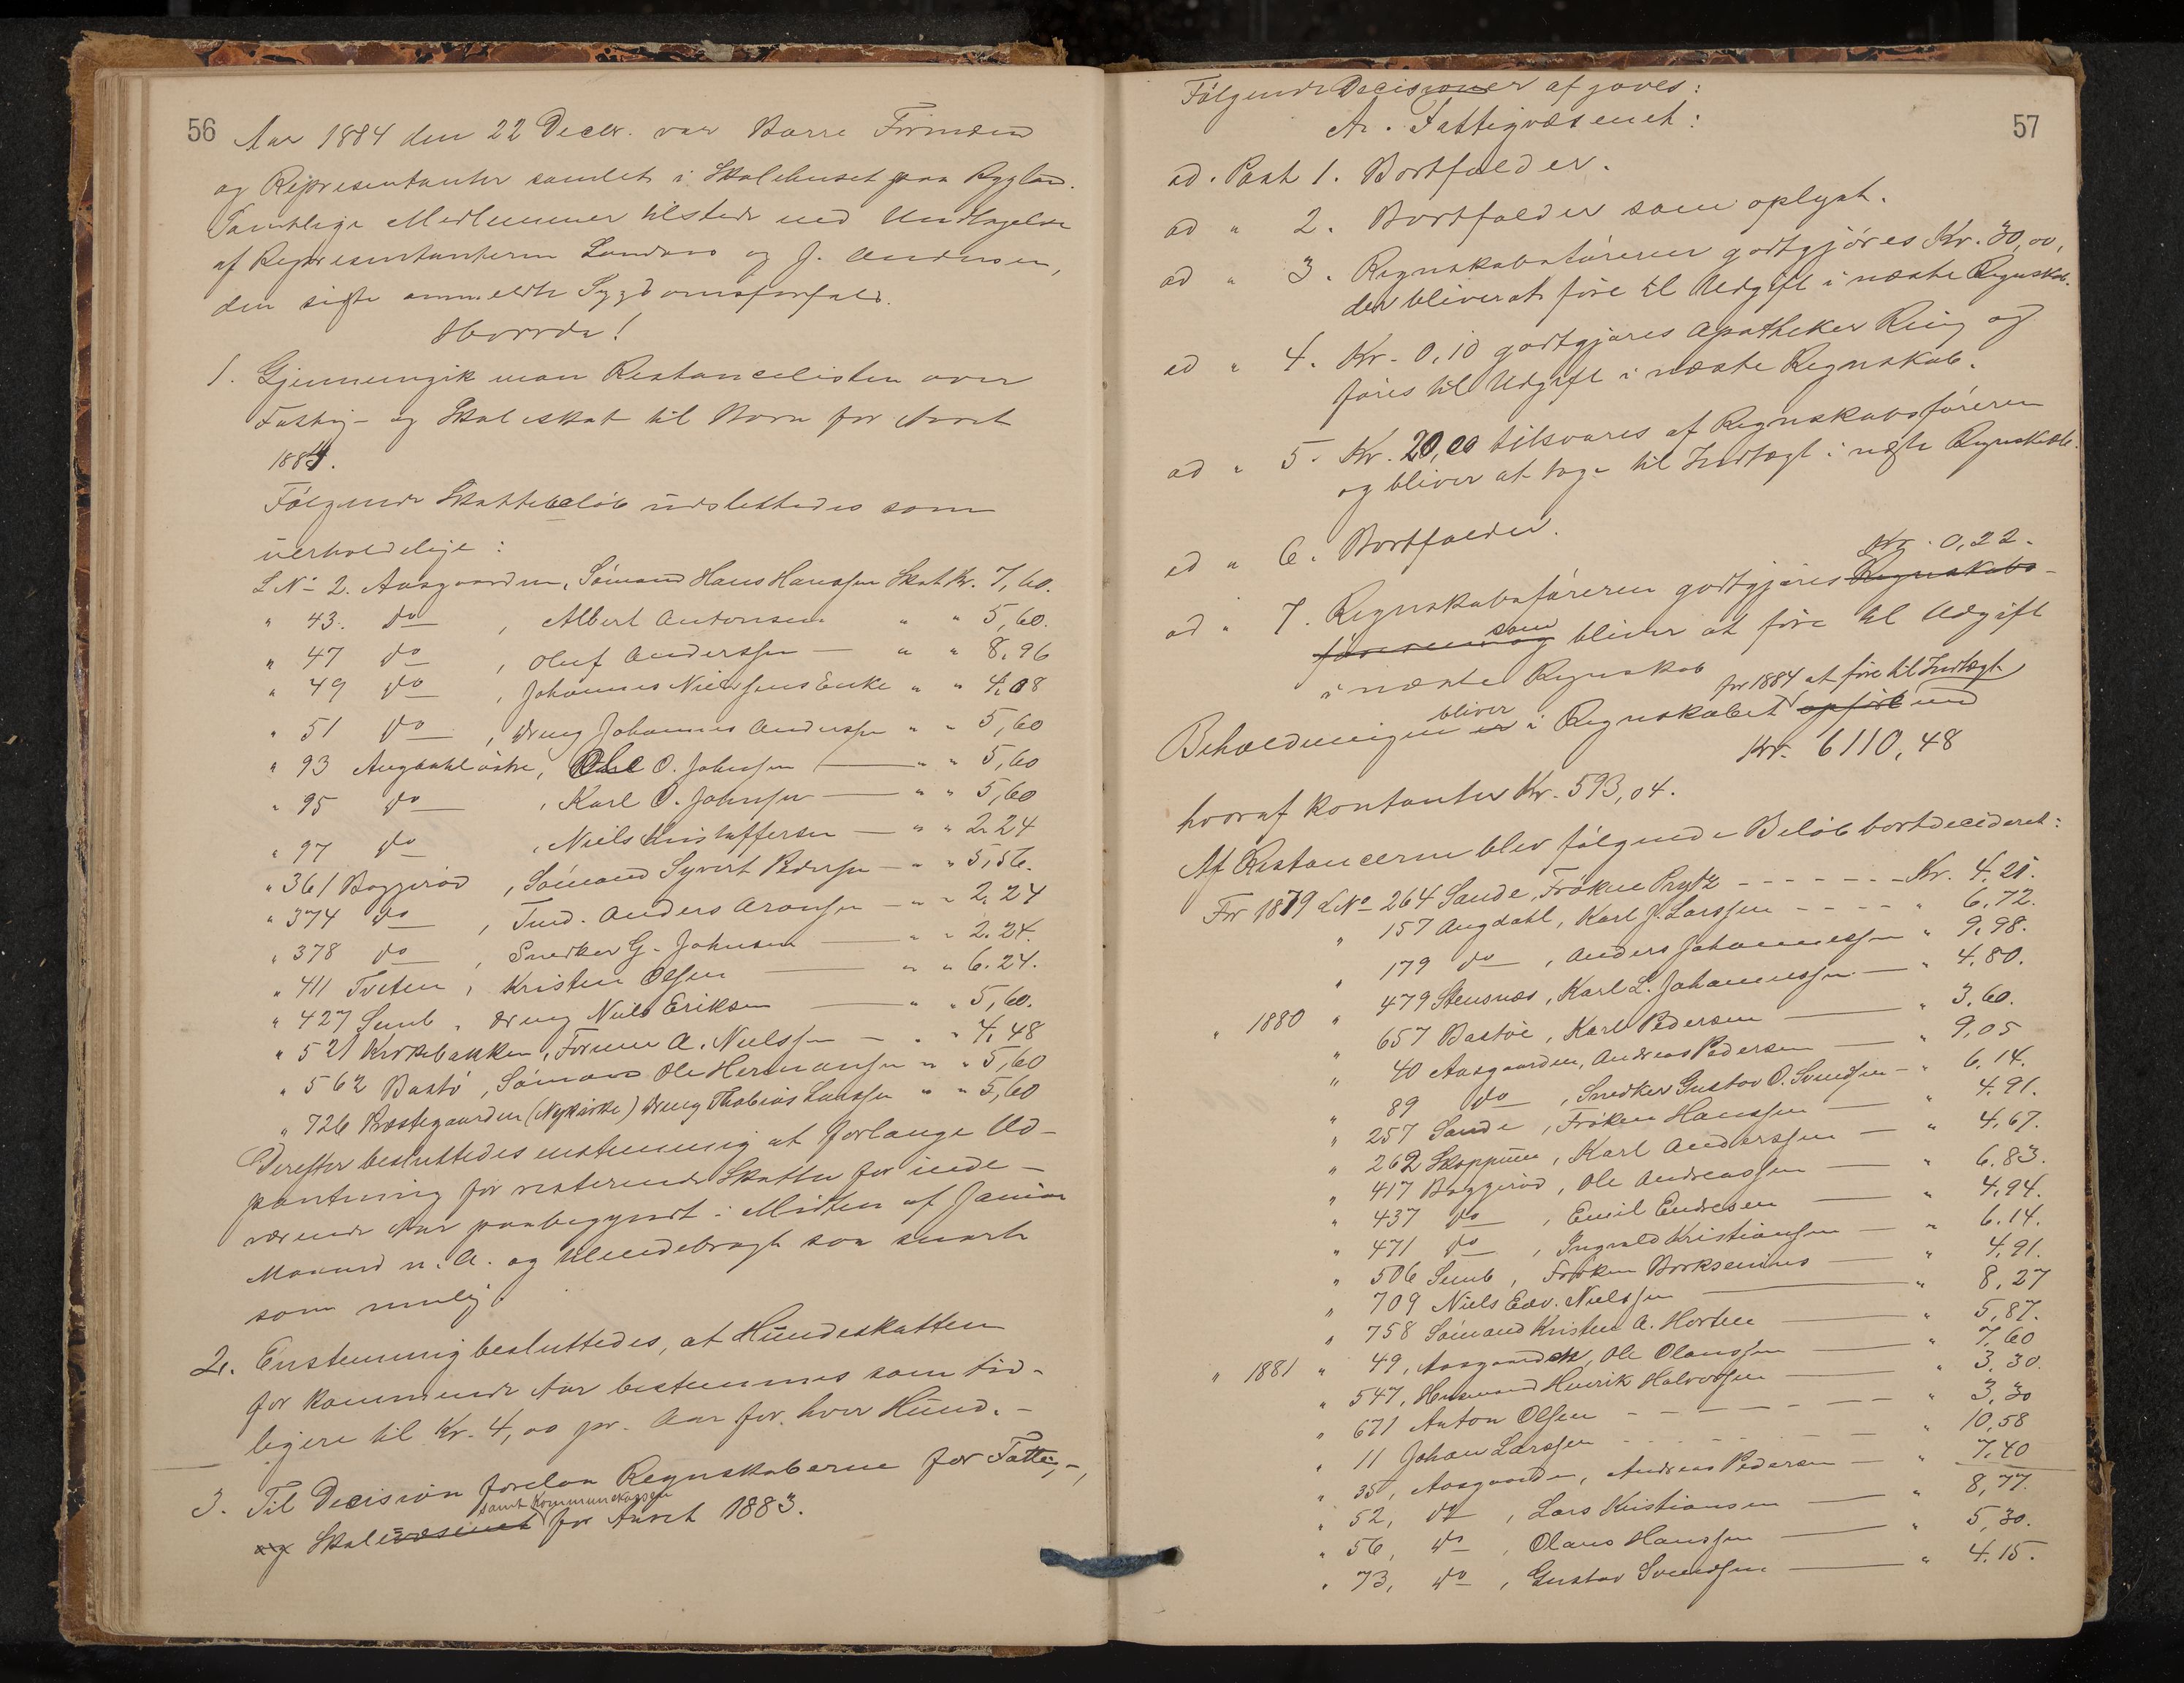 56
Aar 1884 den 22 Decbr. var Borre Formænd
og Repræsentanter samlet i Skolehuset paa Rygland.
Samtlige Medlemmer tilstede med Undtagelse
af Repræsentanterne Landaas og J. Andersen,
den sidste anmeldte Sygdomsforfald.
Hvorda!
1. Gjennemgik man Restancelisten over
Fattig- og Skoleskat til Borre for Aaret
1884.
Følgende Skattebeløb udslettedes som
uerholdelige:
L No 2. Aasgaarden, Sømand Hans Hanssen Skat Kr. 7,60.
" 43. do , Albert Antonsen " " 5,60.
" 47 do , Oluf Anderssen — " " 8,96
" 49 do , Johannes Nielssens Enke " " 4,08
" 51 do , Dreng Johannes Anderssen " " 5,60
" 93 Augdahl østre, Ole O. Johnsen — " " 5,60
" 95 do , Karl O. Johnsen — " " 5,60
" 97 do , Niels Kristoffersen — " " 2.24
" 361 Boggerød , Sømand Syvert Pedersen — " " 5,56.
" 374 do , Tind. Anders Aronsen — " " 2,24
" 378 do , Snedker G. Johnsen — " " 2.24.
" 411 Tveten , Kristen Olsen — " " 6.24.
" 427 Semb , Dreng Niels Eriksen — " " 5,60.
" 521 Kirkebakken, Former A. Nielssen — " " 4,48
" 562 Bastø , Sømand Ole Hermansen " " 5,60
" 726 Præstegaarden (Nykirke) Dreng Thobias Larssen " " 5,60
Derefter besluttedes enstemmig at forlange Ud-
pantning for resterende Skatter for inde-
værende Aar paabegyndt i Midten af Januar
Maaned n. A. og tilendebragt saa snart
som mulig.
2. Enstemmig besluttedes, at Hundeskatten
for kommende Aar bestemmes som tid-
ligere til Kr. 4,00 pr. Aar for hver Hund. -
3. Til Decision forelaa Regnskaberne for Fattig-,
samt Kommunekassen
og Skolevæsenet for Aaret 1883.
57
Følgende Decisioner afgaves:
A. Fattigvæsenet:
ad. Post 1. Bortfalder.
ad " 2. Bortfalder som oplyst.
ad " 3. Regnskabsføreren godtgjøres Kr. 30,00,
der bliver at føre til Udgift i næste Regnskab.
ad " 4. Kr. 0,10 godtgjøres Apotheker Ring og
føres til Udgift i næste Regnskab.
ad " 5. Kr. 20,00 tilsvares af Regnskabsføreren
og bliver at tage til Indtægt i næste Regnskab.
ad " 6. Bortfalder.
Kr. 0,22.
ad " 7. Regnskabsføreren godtgjøres Regnskabs-
som
føreren og bliver at føre til Udgift
i næste Regnskab
bliver for 1884 at føre til Indtægt
Beholdningen er i Regnskabet opført med
Kr. 6110,48
hvoraf kontanter Kr. 593,04.
Af Restancerne blev følgende Beløb bortdecideret:
For 1879 L No 264 Sande, Frøken Prytz - - - - - - - Kr. 4.21.
" 157 Augdahl, Karl J. Larssen - - - - " 6,72.
" 179 do , Anders Johannessen " 9,98.
" 1880 " 479 Stensnæs, Karl L. Johannessen — " 4.80.
" 657 Bastøe, Karl Pedersen — " 3,60.
" 40 Aasgaarden, Andreas Pedersen — " 9,05
" 89 do , Snedker Gustav O. Svendsen — " 6,14.
" 257 Sande , Frøken Hanssen — " 4.91.
" 262 Skoppum, Karl Anderssen — " 4,67.
" 417 Boggerød, Ole Andreassen — " 6.83.
" 437 do , Emil Endresen — " 4,94.
" 471 do , Ingvald Kristiansen — " 6.14.
" 506 Semb, Frøken Borksenius — " 4,91.
" 709 Niels Edv. Nielssen — " 8,27
" 758 Sømand Kristen A. Horten — " 5,87.
" 1881 " 49, Aasgaarden, Ole Olaussen — " 7,60
" 547, Husmand Henrik Halvorsen — " 3,30.
" 671 Anton Olsen - - - - - - - " 3,30
" 11 Johan Larssen - - - - - - " 10,58
" 35, Aasgaarden, Andreas Pedersen — " 7,40
" 52, do , Lars Kristiansen — " 8,77.
" 56, do , Olaus Hanssen — " 5,30.
" 73, do , Gustav Svendsen — " 4.15.